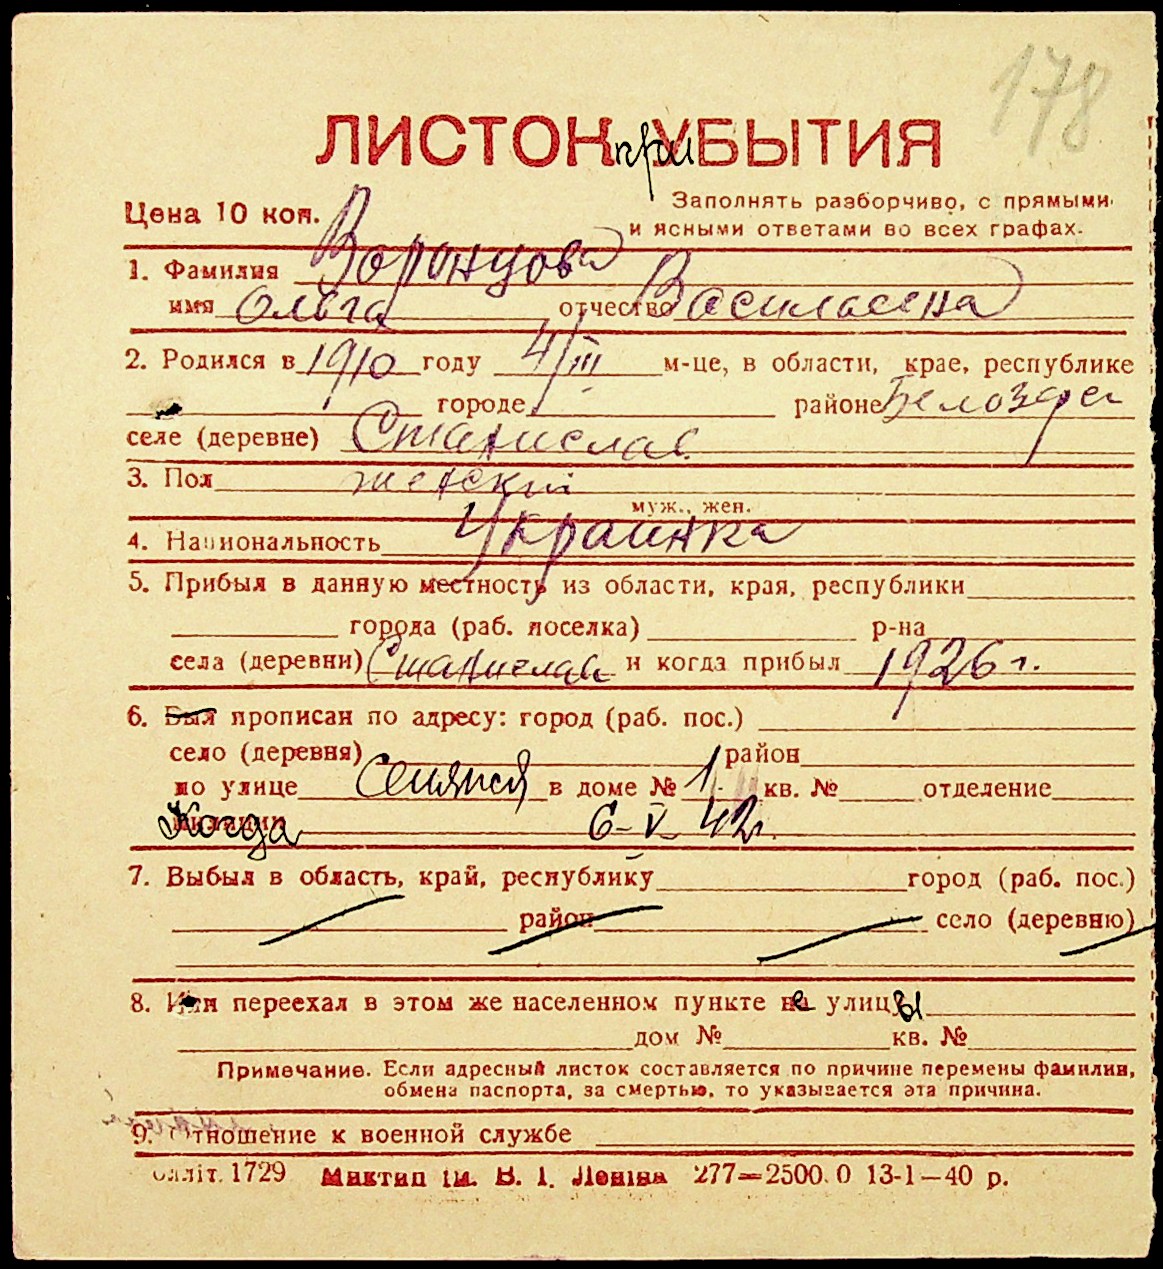 178
ЛИСТОК прибытия
Цена 10 коп.
Заполнять разборчиво, с прямыми
и ясными ответами во всех графах.
1. Фамилия Воронцова
имя Ольга отчество Василевна
2. Родился в 1910 году 4/III м-це, в области, крае, республике
городе районе Белозер
селе (деревне) Станислав
3. Пол женский
муж., жен.
4. Национальность Украинка
5. Прибыл в данную местность из области, края, республики
города (раб. поселка) р-на
села (деревни) Станислав и когда прибыл 1926 г.
6. Был прописан по адресу: город (раб. пос.)
село (деревня) район
по улице в доме № 1 кв. № отделение
Когда 6-V-42г.
7. Выбыл в область, край, республику город (раб. пос.)
район село (деревню)
8. Или переехал в этом же населенном пункте не улицы
дом № кв. №
Примечание. Если адресный листок составляется по причине перемены фамилии,
обмена паспорта, за смертью, то указывается эта причина.
9. Отношение к военной службе
О□літ. 1729 Миктип ім. В. І. Леніна 277—2500.0 13-1—40 р.